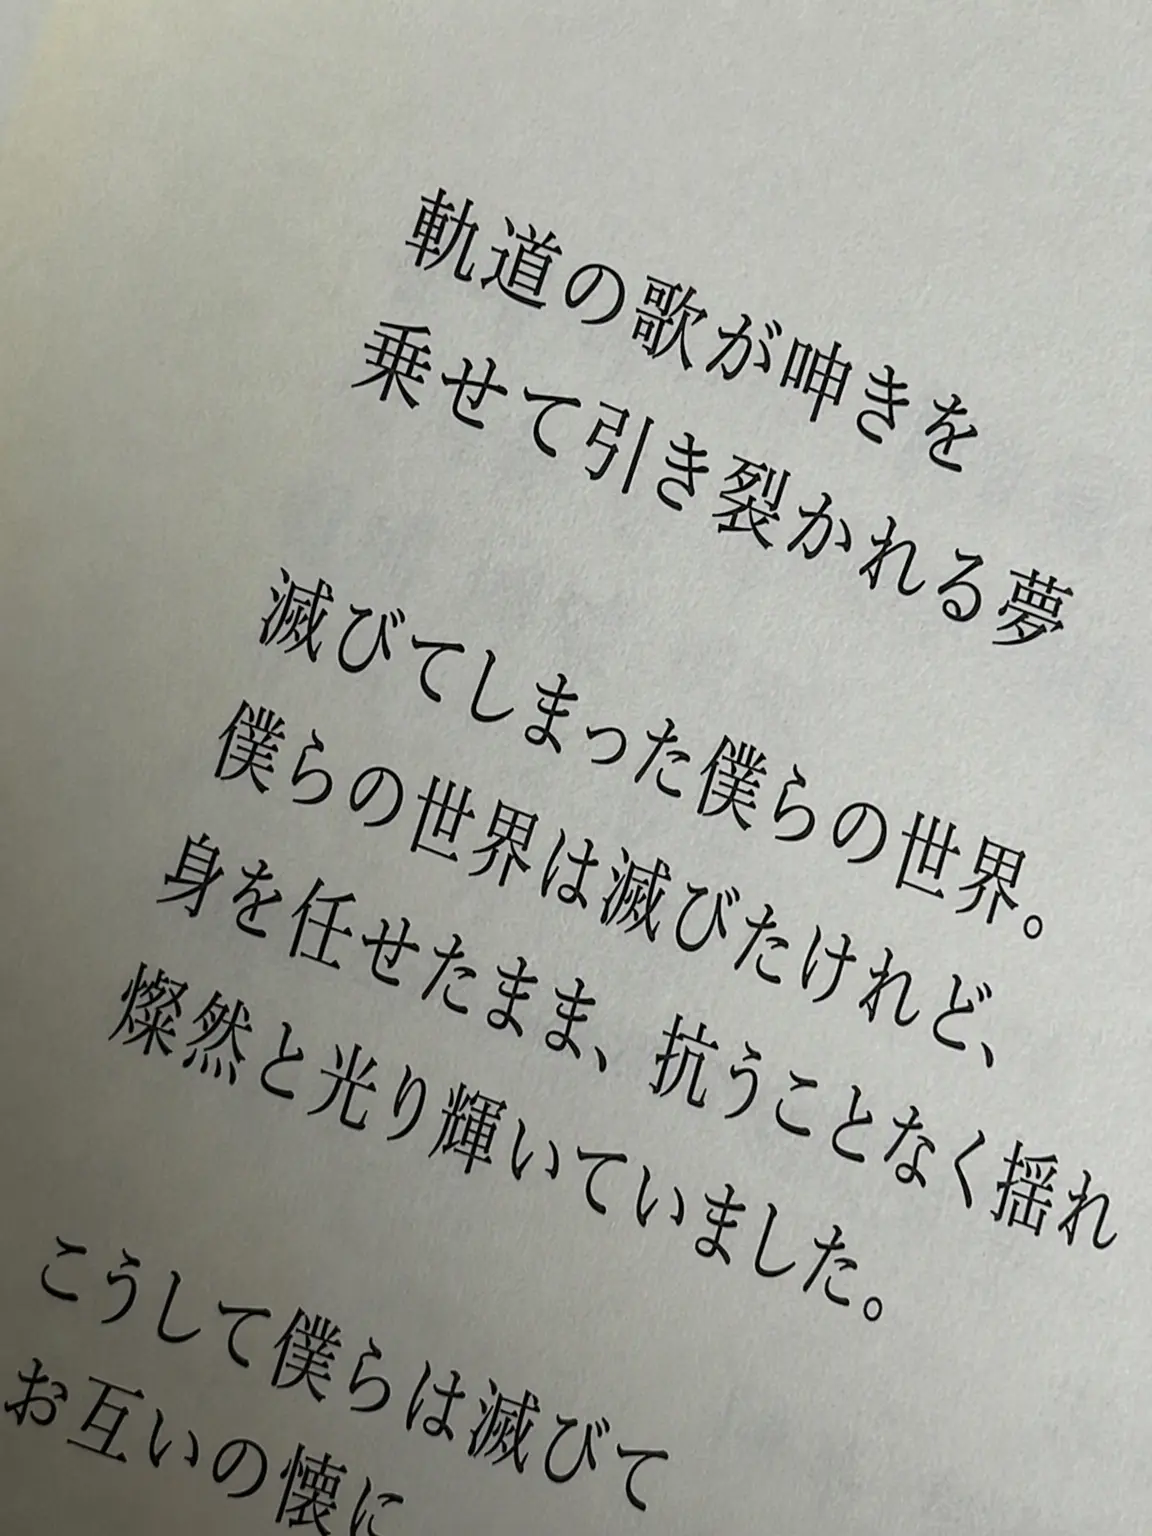 軌道の歌が呻きを
乗せて引き裂かれる夢
滅びてしまった僕らの世界。
僕らの世界は滅びたけれど、
身を任せたまま、抗うことなく揺れ
燦然と光り輝いていました。
こうして僕らは滅びて
お互いの懐に